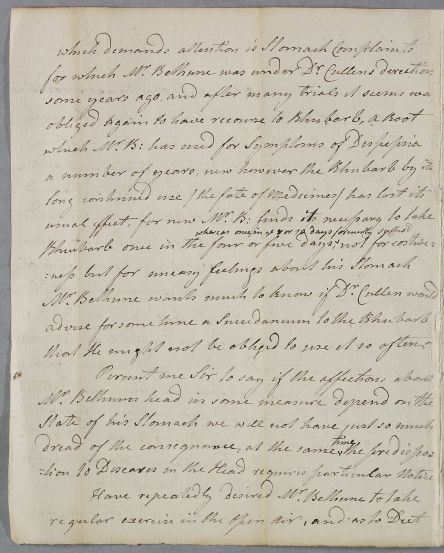 which demands attention is Stomach Complaints
for which Mr. Bethune was under Dr. Cullens derection
some years ago, and after many trials it seems was
obliged again to have recourse to Rhubarb, a Root
which Mr. B: has used for Symptoms of Dispepsia
a number of years, now however the Rhubarb by its
long continued use (the fate of Medicines) has lost its
usual effect, for now Mr. B: finds it necessary to take
whereas once in 9 or 10 days formerly sufficed
Rhubarb once in the four or five days, not for costive=
=ness but for uneasy feelings about his Stomach
Mr. Bethune wants much to know if Dr. Cullen would
advise for some time a Succidaneum to the Rhubarb
that He might not be obliged to use it so often
Permit me Sir to say if the affections about
Mr. Bethunes head in some measure depend on the
State of his Stomach we will not have just so much
dread of the consequence, at the same time the predispos=
=ition to Diseases in the Head requires particular Notice
Have repeatedly desired Mr. Bethune to take
regular exercise in the Open Air, and as to Diet